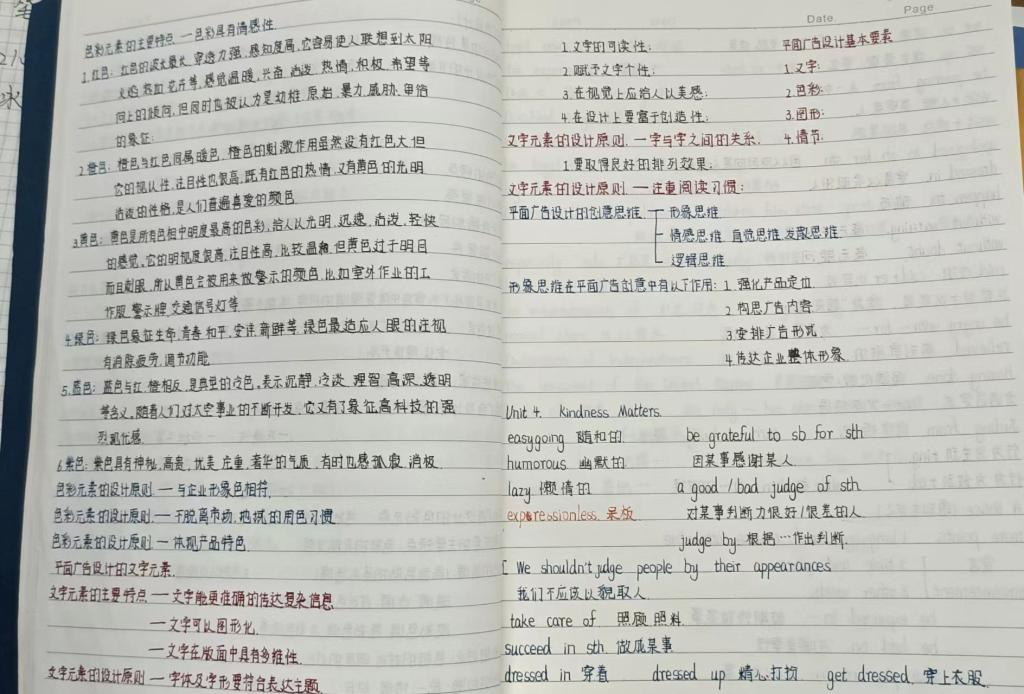 色彩元素的主要特点 — 色彩具有情感性.
1.红色: 红色的波长最大, 穿透力强, 感知度高, 它容易使人联想到太阳
火焰.热血.花卉等, 感觉温暖, 兴奋, 活泼, 热情, 积极, 希望等
向上的倾向, 但同时也被认为是幼稚, 原始, 暴力, 威胁、卑俗
的象征;
2.橙色: 橙色与红色同属暖色, 橙色的刺激作用虽然没有红色大但
它的视认性, 注目性也很高, 既有红色的热情, 又有黄色的光明
活泼的性格, 是人们普遍喜爱的颜色
3.黄色: 黄色是所有色相中明度最高的色彩, 给人以光明, 迅速, 活泼, 轻快
的感觉, 它的明视度很高, 注目性高, 比较温和, 但黄色过于明目
而且刺眼, 所以黄色会被用来做警示的颜色, 比如室外作业的工
作服, 警示牌, 交通信号灯等
4.绿色: 绿色象征生命, 青春, 和平, 安详, 新鲜等, 绿色最适应人眼的注视
有消除疲劳, 调节功能.
5.蓝色: 蓝色与红、橙相反, 是典型的冷色, 表示沉静, 冷淡, 理智, 高深, 透明
等含义, 随着人们对太空事业的不断开发, 它又有了象征高科技的强
烈现代感.
6.紫色: 紫色具有神秘, 高贵, 优美, 庄重, 奢华的气质, 有时也感孤寂, 消极.
色彩元素的设计原则 — 与企业形象色相符.
色彩元素的设计原则 — 不脱离市场, 地域的用色习惯
色彩元素的设计原则 — 体现产品特色.
平面广告设计的文字元素.
文字元素的主要特点 — 文字能更准确的传达复杂信息
— 文字可以图形化.
— 文字在版面中具有多维性.
文字元素的设计原则 — 字体及字形要符合表达主题.
Date Page
1.文字的可读性; 平面广告设计基本要素
2.赋予文字个性; 1.文字;
3.在视觉上应给人以美感; 2.色彩;
4.在设计上要富于创造性; 3.图形;
文字元素的设计原则 — 字与字之间的关系. 4.情节.
1.要取得良好的排列效果;
文字元素的设计原则 — 注重阅读习惯;
平面广告设计的创意思维 形象思维
情感思维 直觉思维 发散思维
逻辑思维
形象思维在平面广告创意中有以下作用: 1 强化产品定位
2 构思广告内容
3.安排广告形式
4.传达企业整体形象
Unit 4. Kindness Matters.
easygoing 随和的 be grateful to sb for sth
humorous 幽默的 因某事感谢某人
lazy 懒惰的 a good / bad judge of sth
expressionless 呆板 对某事判断力很好/很差的人
judge by 根据…作出判断.
[ We shouldn't judge people by their appearances
我们不应该以貌取人.
take care of 照顾 照料
succeed in sth. 做成某事
dressed in 穿着 dressed up 精心打扮 get dressed. 穿上衣服